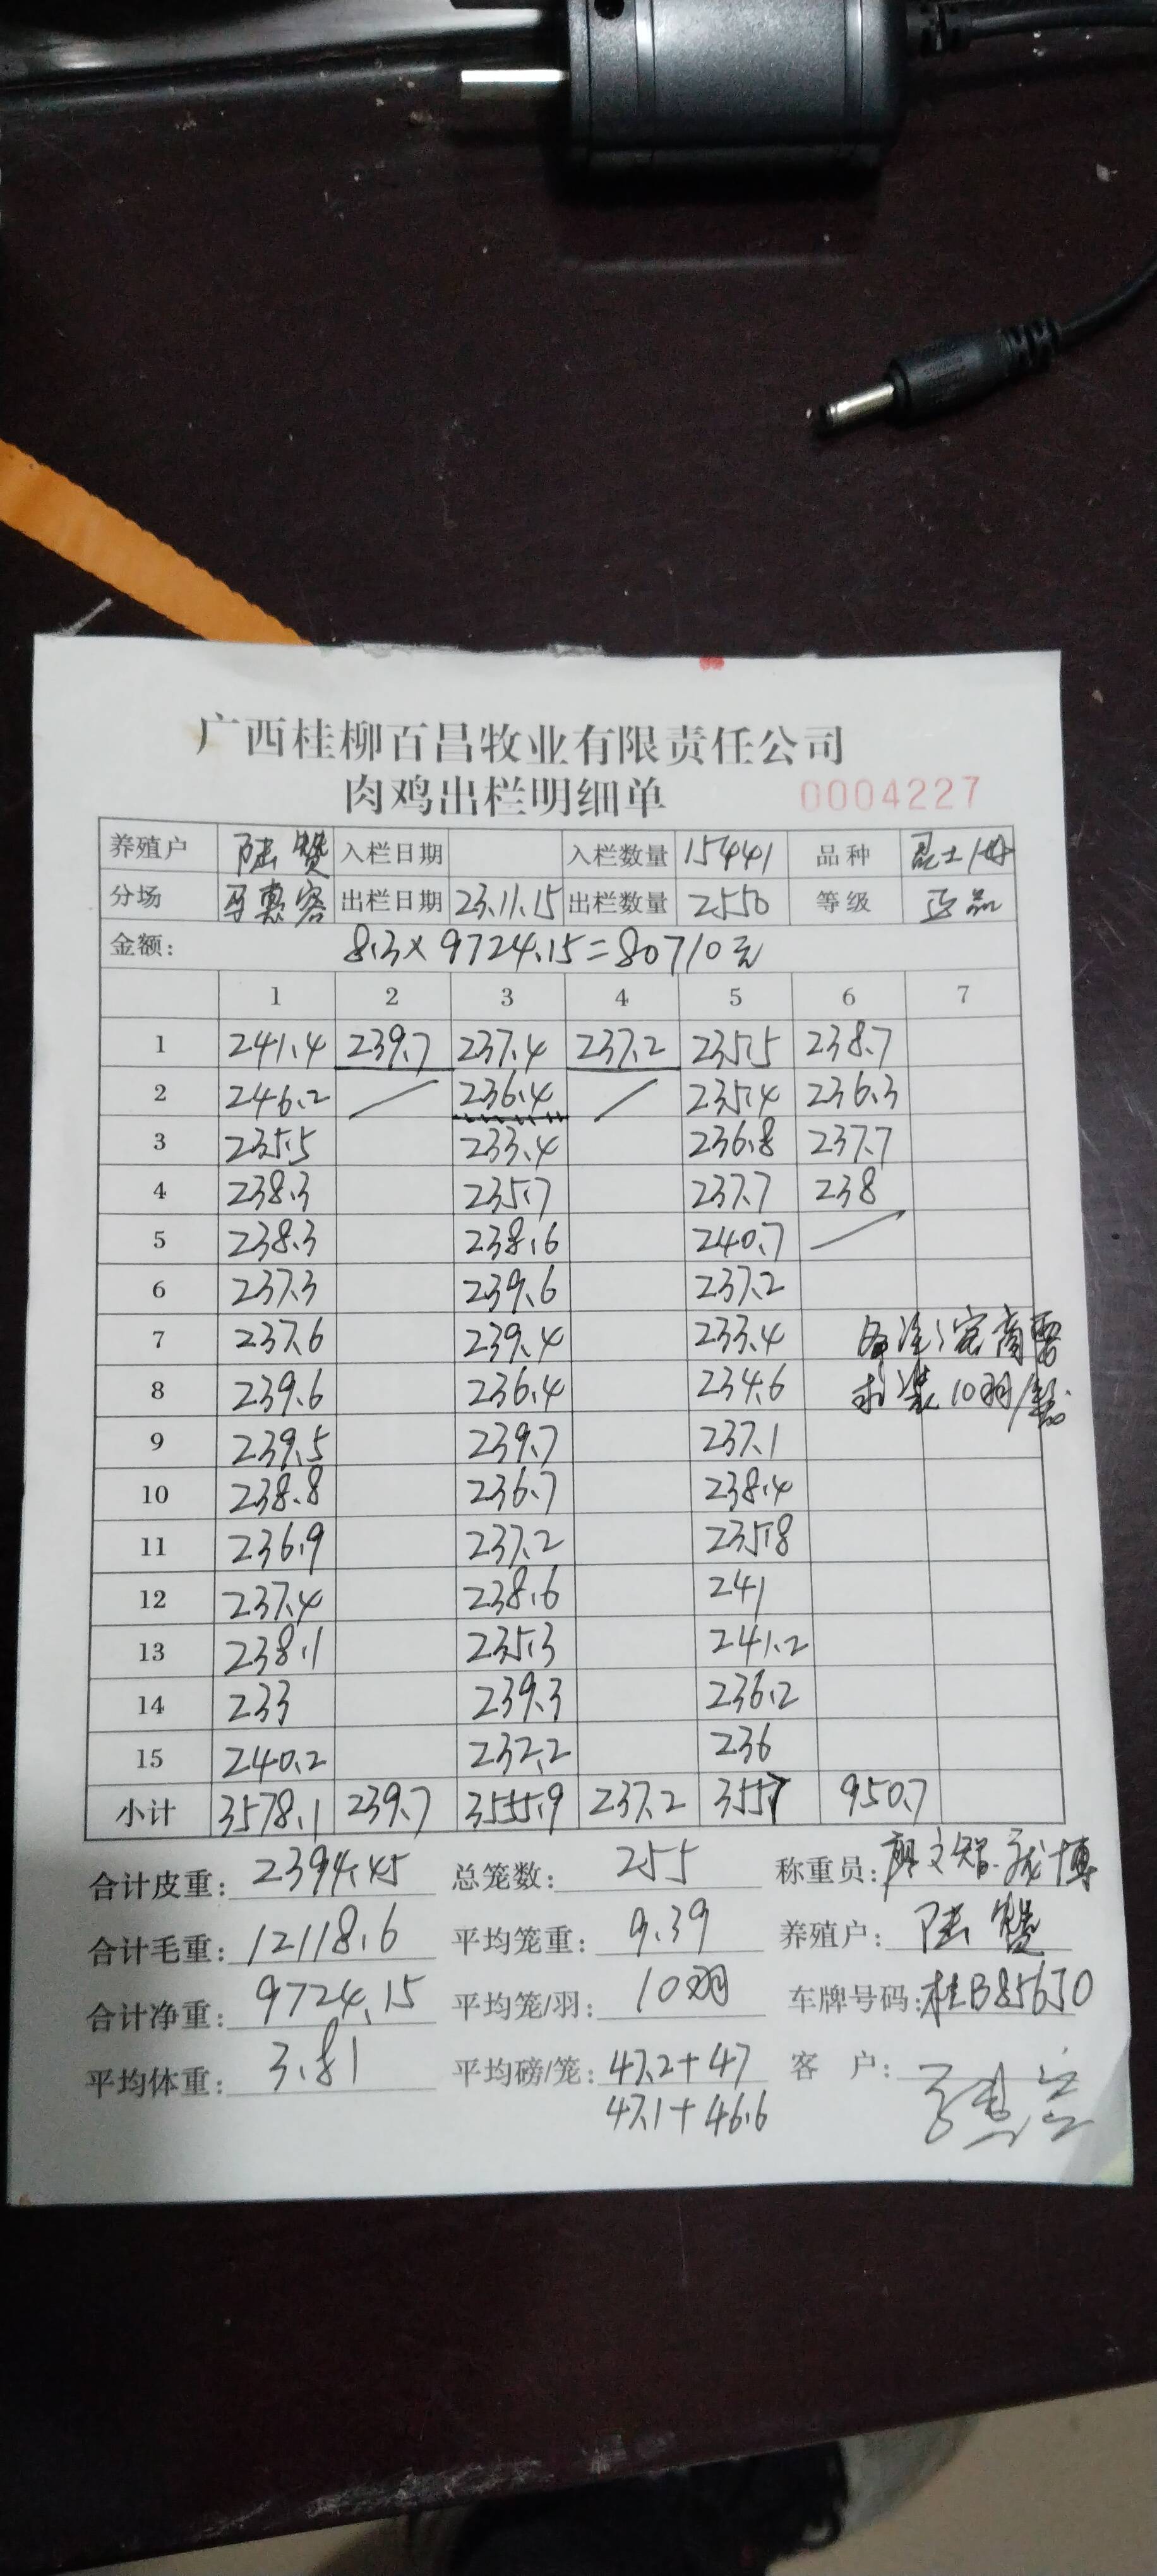 广西桂柳百昌牧业有限责任公司
肉鸡出栏明细单 0004227
养殖户 陆赞 入栏日期 入栏数量 15441 品种
分场 马惠容 出栏日期 23.11.15 出栏数量 2550 等级 正品
金额: 8.3×9724.15=80710元
1 2 3 4 5 6 7
1 241.4 239.7 237.4 237.2 235.5 238.7
2 246.2 236.4 235.4 236.3
3 235.5 233.4 236.8 237.7
4 238.3 235.7 237.7 238
5 238.3 238.6 240.7
6 237.3 239.6 237.2
7 237.6 239.4 233.4 备注:客商要
8 239.6 236.4 234.6 求装10羽/笼
9 239.5 239.7 237.1
10 238.8 236.7 238.4
11 236.9 237.2 235.8
12 237.4 238.6 241
13 238.1 235.3 241.2
14 233 239.3 236.2
15 240.2 232.2 236
小计 3578.1 239.7 3555.9 237.2 3557 950.7
合计皮重: 2394.45 总笼数: 255 称重员:
合计毛重: 12118.6 平均笼重: 9.39 养殖户: 陆赞
合计净重: 9724.15 平均笼/羽: 10羽 车牌号码: 桂B85650
平均体重: 3.81 平均磅/笼: 47.2+47 客 户:
47.1+46.6